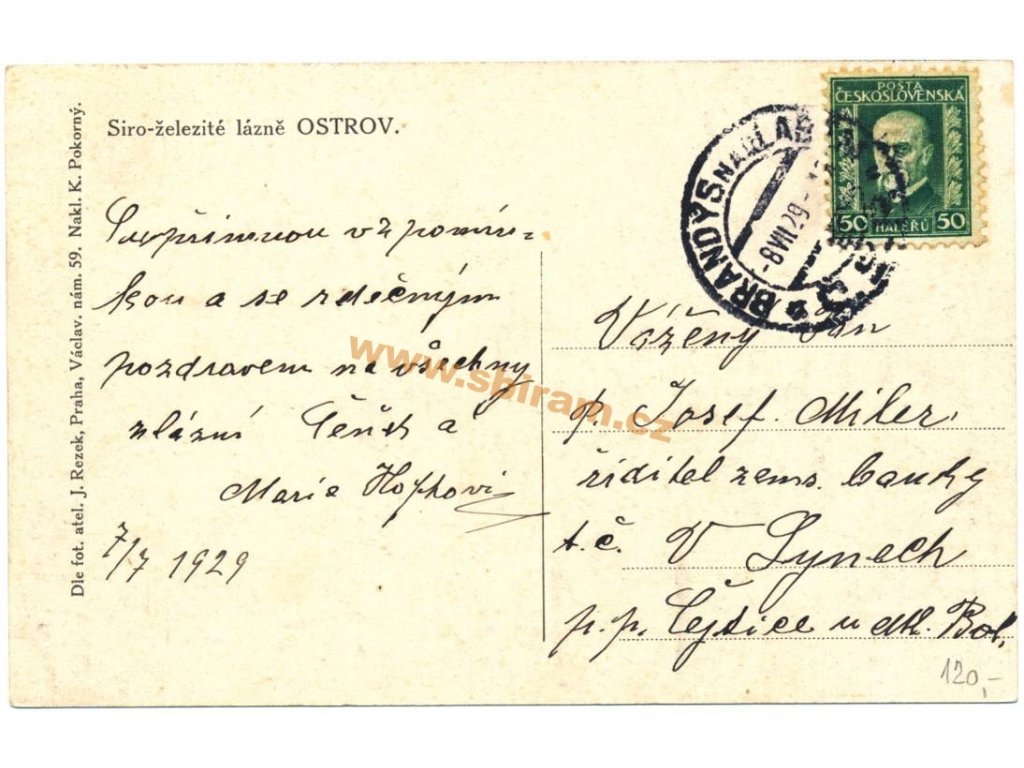 Siro-železité lázně OSTROV.
S upřimnou vzpomín-
kou a se srdečným
pozdravem na všechny
z lázní Čeněk a
Marie Hophovi
7/7 1929
Dle fot. atel. J. Rezek, Praha, Václav. nám. 59. Nakl. K. Pokorný.
POŠTA
ČESKOSLOVENSKÁ
50 HALÉŘŮ 50
BRANDÝS NAD LAB
-8 VII 29-
Vážený Pan
p. Josef Miler
řiditel zems. banky
t.č. V Lynech
p.p. Čejtice u Ml. Bol.
120,-
www.sbiram.cz